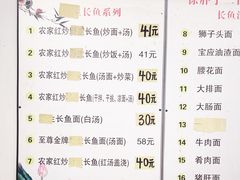 长鱼系列
1 农家红炒长鱼(炒面+汤) 41元
2 农家红炒长鱼(炒饭+汤) 41元
3 农家红炒长鱼(汤面+炒菜) 40元
4 农家红炒长鱼 40元
5 长鱼面(白汤) 30元
6 至尊金牌长鱼面(汤面) 58元
7 农家红炒长鱼(红汤盖浇) 40元
8 狮子头面
9 宝应油渣面
10 腰花面
11 大排面
12 大肠面
13
14 牛肉面
15 肴肉面
16 猪肝面